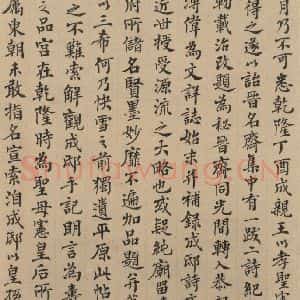 月乃不可悉乾隆丁酉成親王以孝聖
得之遂以詒晉名齋集有一跋詩紀
勒載治改題為秘晉齋同光間轉入恭
溥偉為文詳誌始末并補錄成邸詩
近世授受源流之大略也或疑純廟留
府所諸名賢墨妙靡不遍加品題并
以三希何乃快雪之前獨遺平原此帖
之不難索解觀成邸手記明言為壽
之品宮在乾隆時為聖母憲皇后所
屬東朝未敢指名宣索洎成邸以皇孫
Shufawang.CN